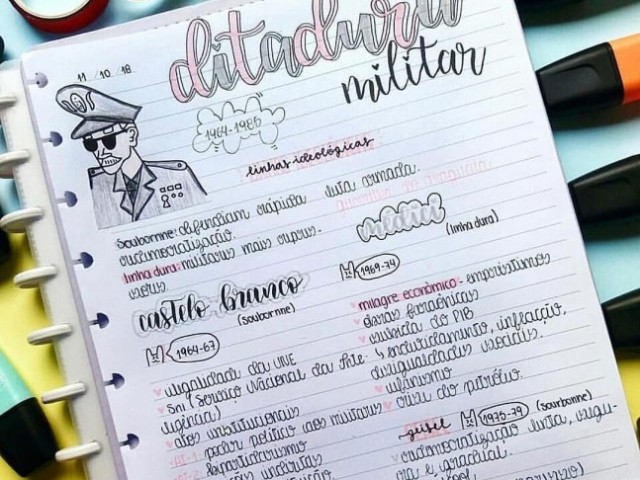 ditadura
militar
11/10/18
1964-1985
linhas ideológicas
Sourbonne: defendiam rápida
redemocratização.
linha dura: militares mais repres-
sores.
castelo branco
(sourbonne)
1964-67
ilegalidade da UNE
SNI (Serviço Nacional da Inte-
ligência)
atos institucionais
AI-1: poder político aos militares
AI-2: bipartidarismo
luta armada.
guerrilha do araguaia
médici
(linha dura)
1969-74
milagre econômico - empréstimos
obras faraônicas
subida do PIB
endividamento, inflação,
desigualdades sociais.
ufanismo
crise do petróleo.
geisel
1975-79
(sourbonne)
redemocratização lenta, segu-
ra e gradual.